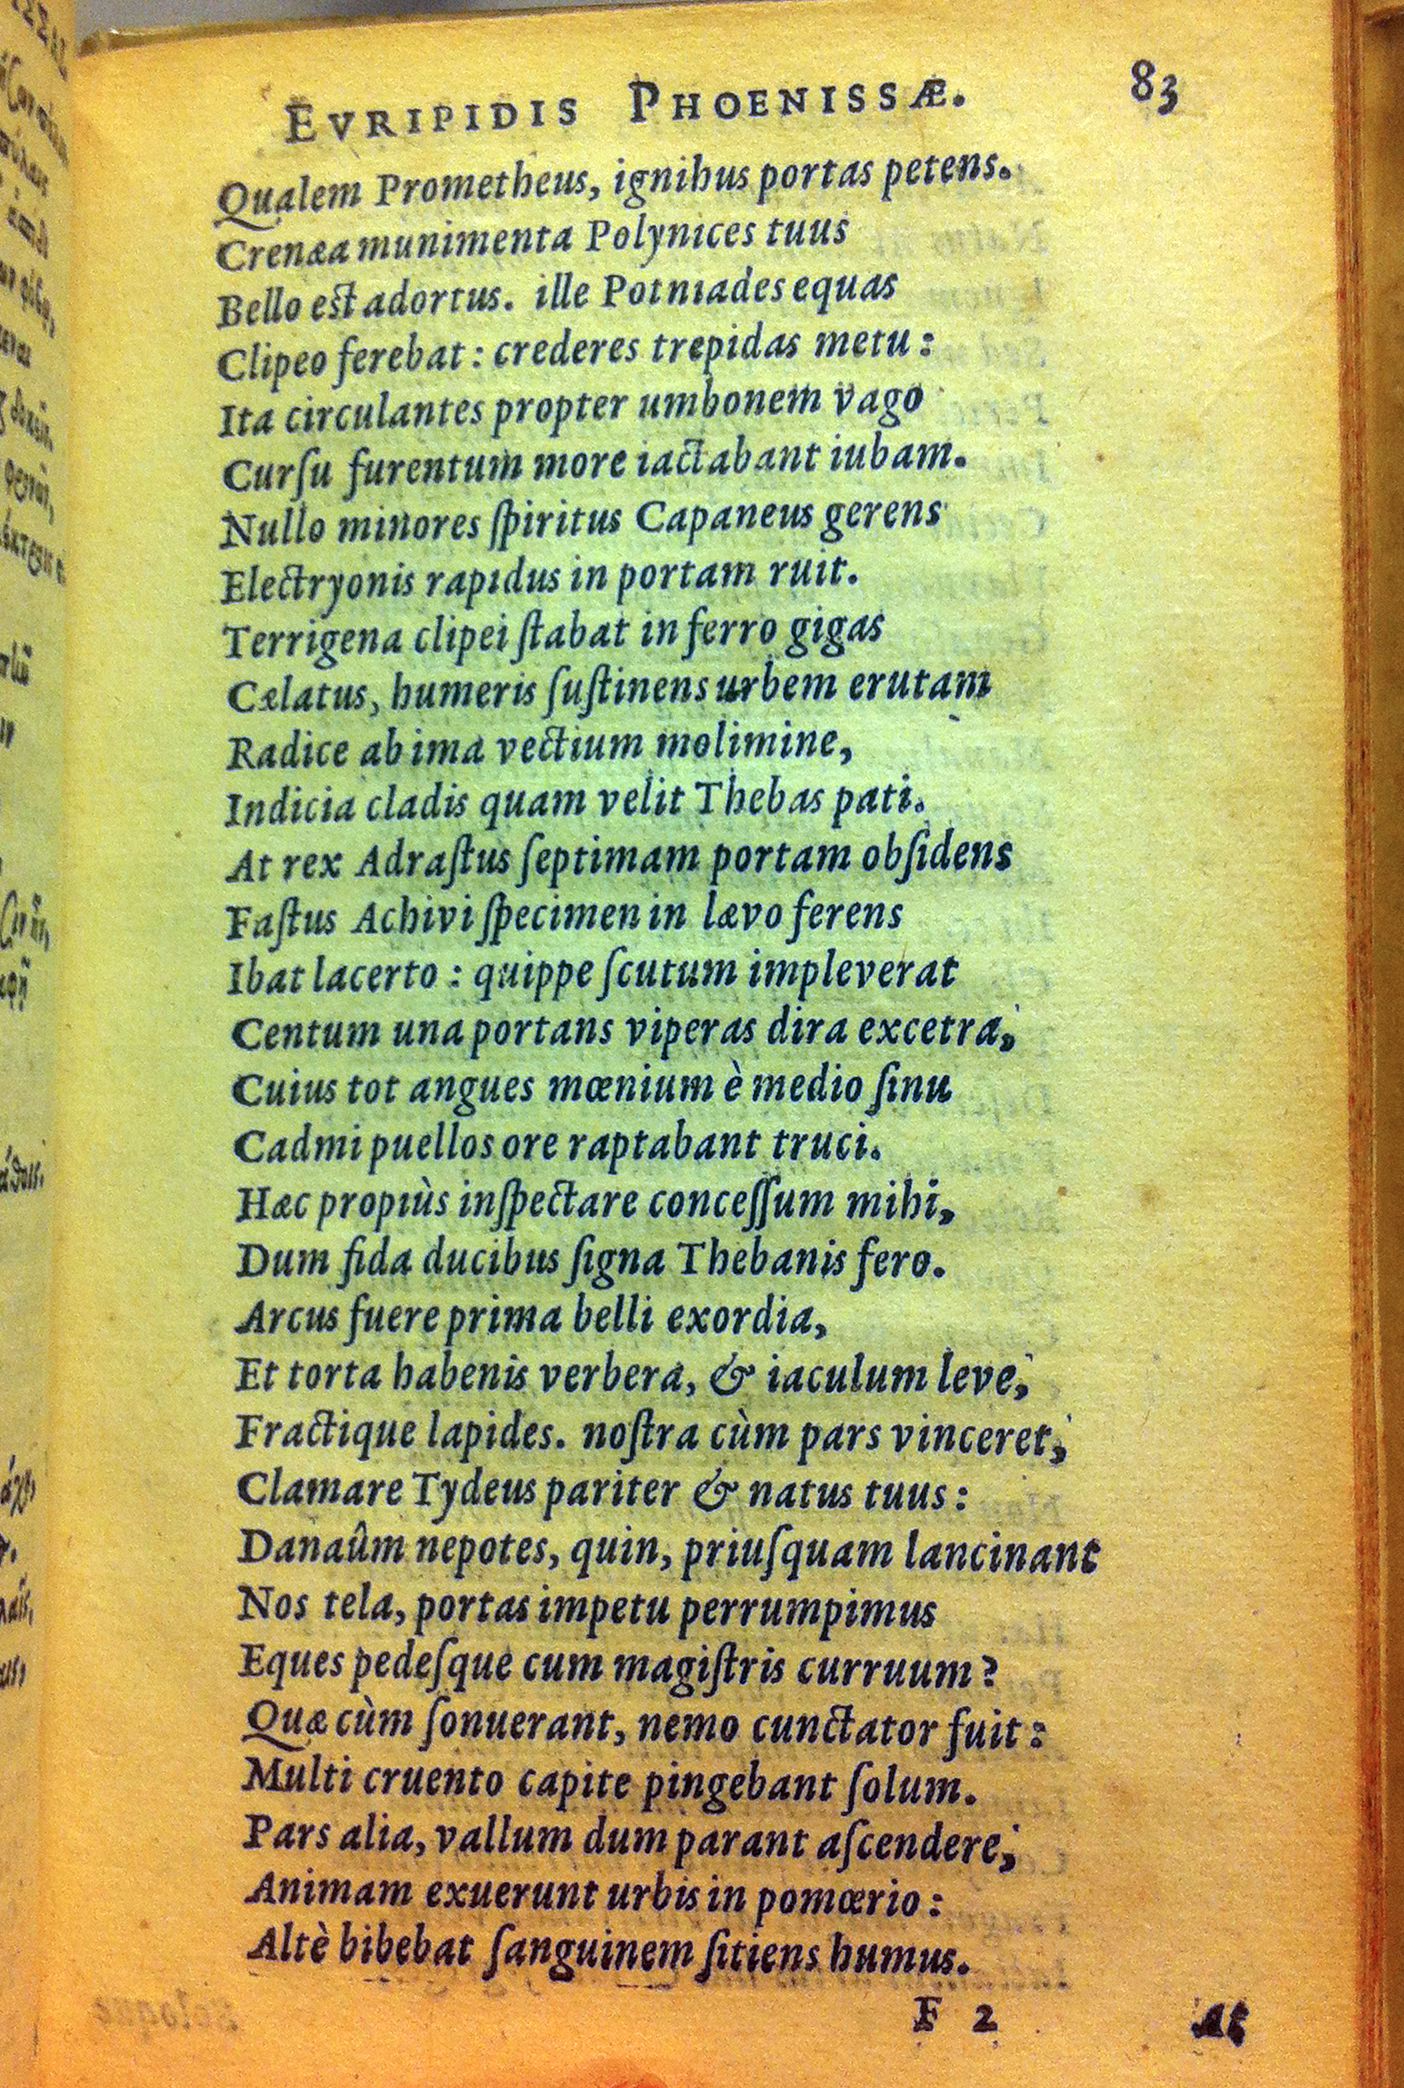 EVRIPIDIS PHOENISSÆ. 83
Qualem Prometheus, ignibus portas petens.
Crenæa munimenta Polynices tuus
Bello est adortus. ille Potniades equas
Clipeo ferebat: crederes trepidas metu:
Ita circulantes propter umbonem vago
Curſu furentum more iactabant iubam.
Nullo minores ſpiritus Capaneus gerens
Electryonis rapidus in portam ruit.
Terrigena clipei ſtabat in ferro gigas
Cælatus, humeris ſuſtinens urbem erutam
Radice ab ima vectium molimine,
Indicia cladis quam velit Thebas pati.
At rex Adraſtus ſeptimam portam obſidens
Faſtus Achivi ſpecimen in lævo ferens
Ibat lacerto: quippe ſcutum impleverat
Centum una portans viperas dira excetra,
Cuius tot angues mœnium è medio ſinu
Cadmi puellos ore raptabant truci.
Hæc propiùs inſpectare conceſſum mihi,
Dum fida ducibus ſigna Thebanis fero.
Arcus fuere prima belli exordia,
Et torta habenis verbera, & iaculum leve,
Fractique lapides. noſtra cùm pars vinceret,
Clamare Tydeus pariter & natus tuus:
Danaûm nepotes, quin, priuſquam lancinant
Nos tela, portas impetu perrumpimus
Eques pedeſque cum magiſtris curruum?
Quæ cùm ſonuerant, nemo cunctator fuit:
Multi cruento capite pingebant ſolum.
Pars alia, vallum dum parant aſcendere,
Animam exuerunt urbis in pomœrio:
Altè bibebat ſanguinem ſitiens humus.
F 2 At